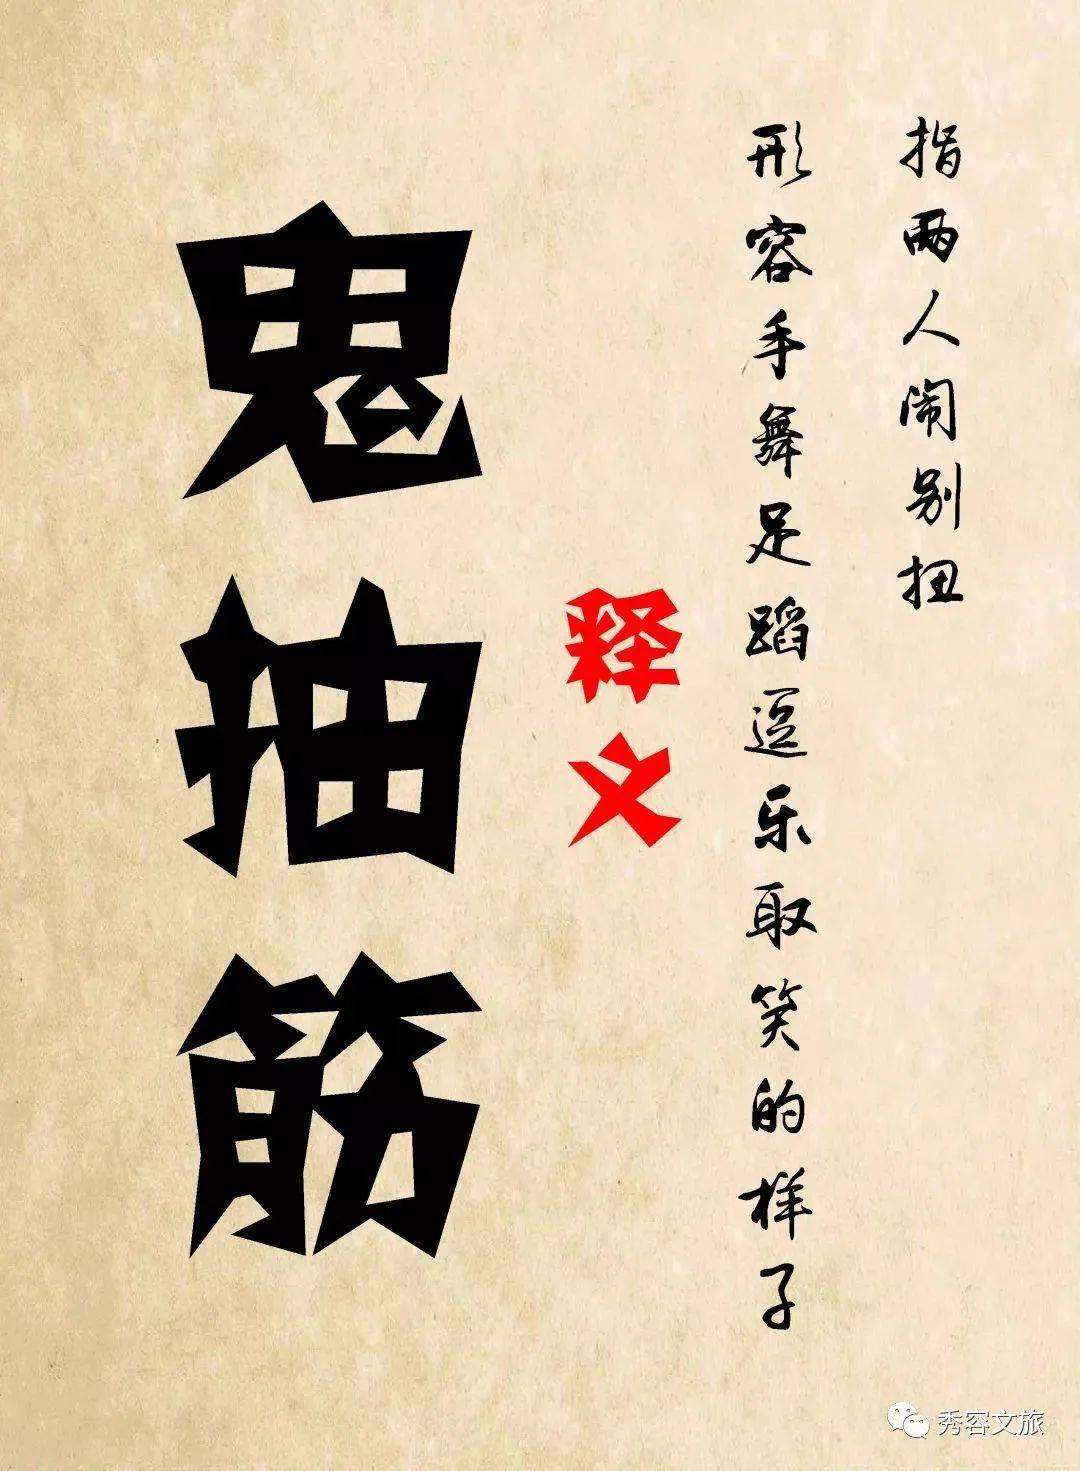 鬼抽筋
释义
形容手舞足蹈逗乐取笑的样子
指两人闹别扭
秀容文旅